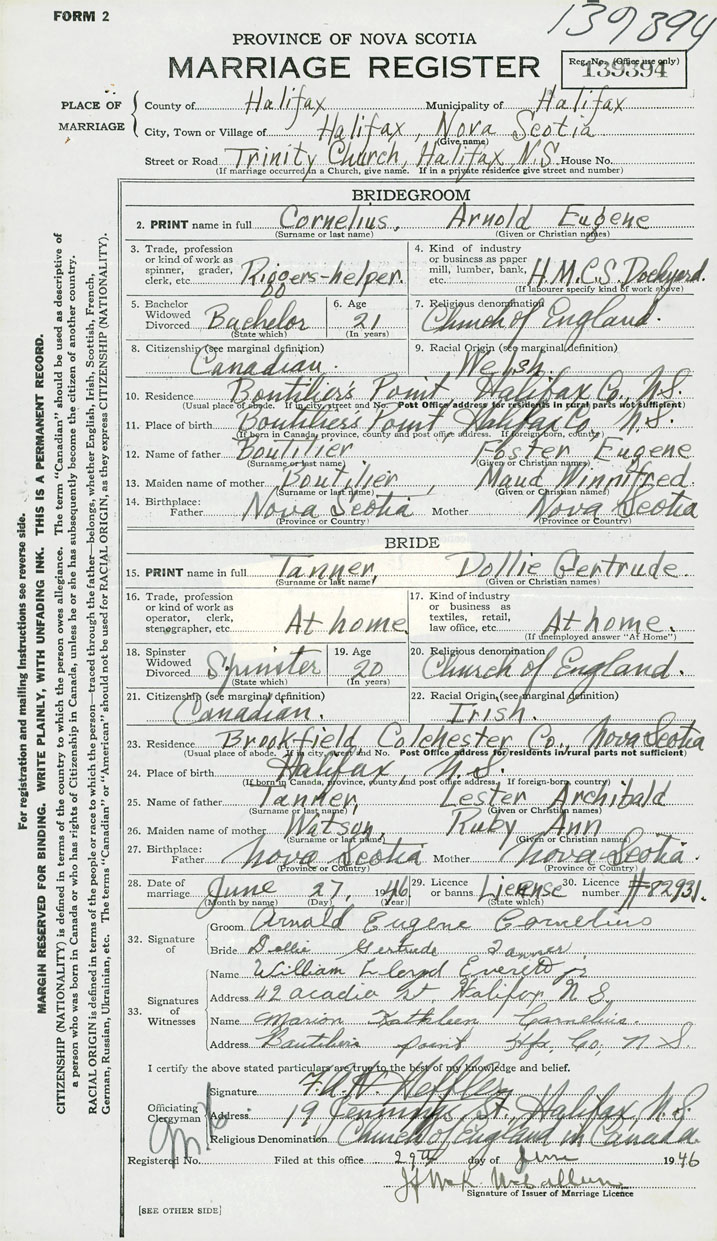 FORM 2
139394
PROVINCE OF NOVA SCOTIA
MARRIAGE REGISTER
Reg. No. (Office use only)
139394
PLACE OF MARRIAGE
County of Halifax Municipality of Halifax
City, Town or Village of Halifax, Nova Scotia
(Give name)
Street or Road Trinity Church, Halifax N.S. House No.
(If marriage occurred in a Church, give name. If in a private residence give street and number)
BRIDEGROOM
2. PRINT name in full Cornelius, Arnold Eugene
(Surname or last name) (Given or Christian names)
3. Trade, profession or kind of work as spinner, grader, clerk, etc. Riggers-helper.
4. Kind of industry or business as paper mill, lumber, bank, etc. H.M.C.S. Dockyard.
(If labourer specify kind of work above)
5. Bachelor Widowed Divorced Bachelor
(State which)
6. Age 21
(In years)
7. Religious denomination Church of England.
8. Citizenship (see marginal definition) Canadian.
9. Racial Origin (see marginal definition) Welsh.
10. Residence Boutilier's Point, Halifax Co., N.S.
(Usual place of abode. If in city, street and No. Post Office address for residents in rural parts not sufficient)
11. Place of birth Boutiliers Point Halifax Co N.S.
(If born in Canada, province, county and post office address. If foreign born, country)
12. Name of father Boutilier Foster Eugene
(Surname or last name) (Given or Christian names)
13. Maiden name of mother Boutilier, Maud Winnifred
(Surname or last name) (Given or Christian names)
14. Birthplace: Father Nova Scotia Mother Nova Scotia
(Province or Country) (Province or Country)
BRIDE
15. PRINT name in full Tanner, Dollie Gertrude
(Surname or last name) (Given or Christian names)
16. Trade, profession or kind of work as operator, clerk, stenographer, etc. At home
17. Kind of industry or business as textiles, retail, law office, etc. At home.
(If unemployed answer "At Home")
18. Spinster Widowed Divorced Spinster
(State which)
19. Age 20
(In years)
20. Religious denomination Church of England.
21. Citizenship (see marginal definition) Canadian.
22. Racial Origin (see marginal definition) Irish.
23. Residence Brookfield, Colchester Co., Nova Scotia
(Usual place of abode. If in city, street and No. Post Office address for residents in rural parts not sufficient)
24. Place of birth Halifax, N.S.
(If born in Canada, province, county and post office address. If foreign-born, country)
25. Name of father Tanner, Lester Archibald
(Surname or last name) (Given or Christian names)
26. Maiden name of mother Watson, Ruby Ann
(Surname or last name) (Given or Christian names)
27. Birthplace: Father Nova Scotia Mother Nova Scotia.
(Province or Country) (Province or Country)
28. Date of marriage June 27, 1946
(Month by name) (Day) (Year)
29. Licence or banns License
(State which)
30. Licence number #82931.
32. Signature of
Groom Arnold Eugene Cornelius
Bride Dollie Gertrude Tanner
33. Signatures of Witnesses
Name William Lloyd Everett jr
Address 42 acadia St, Halifax N S.
Name Marion Kathleen Cornelius.
Address Boutiliers point Hfx, Co, N S
I certify the above stated particulars are true to the best of my knowledge and belief.
Officiating Clergyman
Signature
Address 19 Jennings St., Halifax N.S.
Religious Denomination Church of England in Canada
Registered No. Filed at this office 29th day of June 1946
Signature of Issuer of Marriage Licence
[SEE OTHER SIDE]
For registration and mailing instructions see reverse side.
MARGIN RESERVED FOR BINDING. WRITE PLAINLY, WITH UNFADING INK. THIS IS A PERMANENT RECORD.
CITIZENSHIP (NATIONALITY) is defined in terms of the country to which the person owes allegiance. The term "Canadian" should be used as descriptive of
a person who was born in Canada or who has rights of Citizenship in Canada, unless he or she has subsequently become the citizen of another country.
RACIAL ORIGIN is defined in terms of the people or race to which the person—traced through the father—belongs, whether English, Irish, Scottish, French,
German, Russian, Ukrainian, etc. The terms "Canadian" or "American" should not be used for RACIAL ORIGIN, as they express CITIZENSHIP (NATIONALITY).